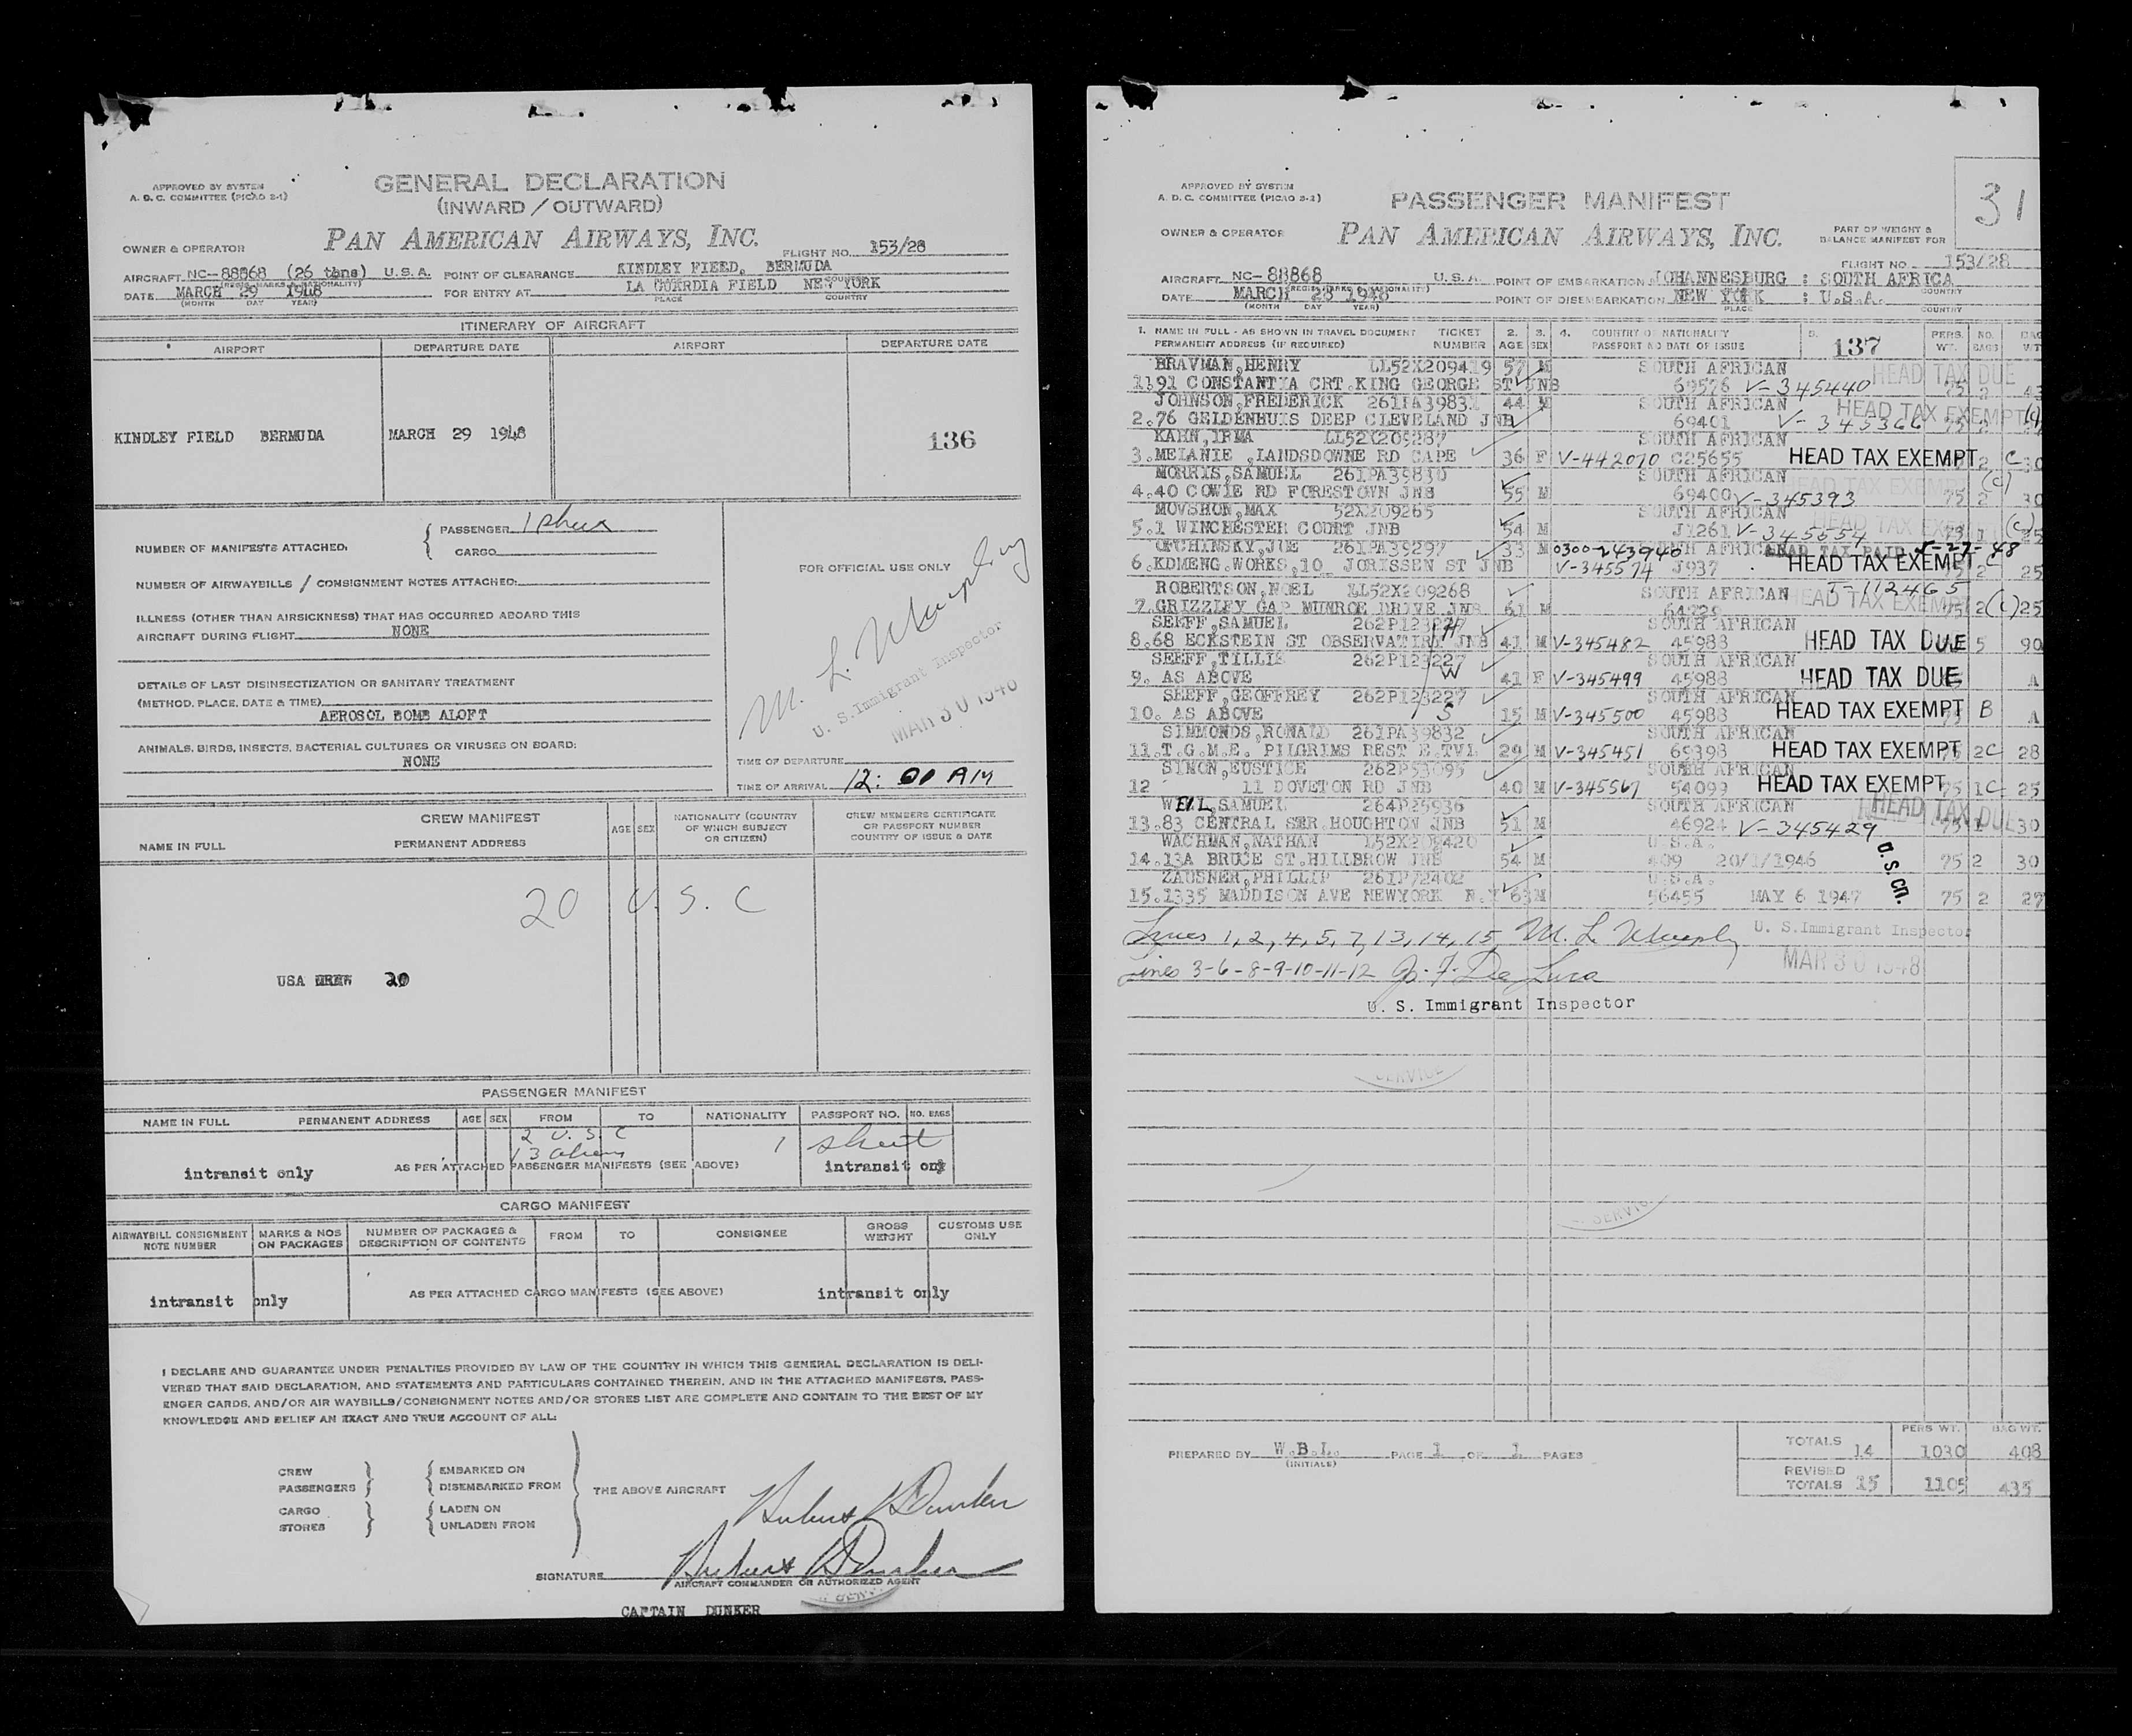 APPROVED BY SYSTEM
A. D. C. COMMITTEE (PICAO 2-1)
GENERAL DECLARATION
(INWARD / OUTWARD)
OWNER & OPERATOR
PAN AMERICAN AIRWAYS, INC.
FLIGHT NO. 153/28
AIRCRAFT NC-88868 (26 tons) U.S.A. POINT OF CLEARANCE KINDLEY FIELD, BERMUDA
DATE MARCH 29 1948 FOR ENTRY AT LA GUARDIA FIELD NEW YORK
(MONTH DAY YEAR) PLACE COUNTRY
ITINERARY OF AIRCRAFT
AIRPORT DEPARTURE DATE AIRPORT DEPARTURE DATE
KINDLEY FIELD BERMUDA MARCH 29 1948 136
NUMBER OF MANIFESTS ATTACHED: PASSENGER 1
CARGO
NUMBER OF AIRWAYBILLS / CONSIGNMENT NOTES ATTACHED:
ILLNESS (OTHER THAN AIRSICKNESS) THAT HAS OCCURRED ABOARD THIS
AIRCRAFT DURING FLIGHT NONE
DETAILS OF LAST DISINSECTIZATION OR SANITARY TREATMENT
(METHOD, PLACE, DATE & TIME)
AEROSOL BOMB ALOFT
ANIMALS, BIRDS, INSECTS, BACTERIAL CULTURES OR VIRUSES ON BOARD:
NONE
FOR OFFICIAL USE ONLY
M. L. Murphy
U. S. Immigrant Inspector
MAR 30 1948
TIME OF DEPARTURE
TIME OF ARRIVAL 12:00 AM
CREW MANIFEST
NAME IN FULL PERMANENT ADDRESS AGE SEX
NATIONALITY (COUNTRY
OF WHICH SUBJECT
OR CITIZEN)
CREW MEMBERS CERTIFICATE
OR PASSPORT NUMBER
COUNTRY OF ISSUE & DATE
20 U. S. C
USA CREW 20
PASSENGER MANIFEST
NAME IN FULL PERMANENT ADDRESS AGE SEX FROM TO NATIONALITY PASSPORT NO. NO. BAGS
2 U. S. C
13 aliens 1 sheet
intransit only AS PER ATTACHED PASSENGER MANIFESTS (SEE ABOVE) intransit
CARGO MANIFEST
AIRWAYBILL CONSIGNMENT
NOTE NUMBER
MARKS & NOS
ON PACKAGES
NUMBER OF PACKAGES &
DESCRIPTION OF CONTENTS
FROM TO CONSIGNEE
GROSS
WEIGHT
CUSTOMS USE
ONLY
intransit only AS PER ATTACHED CARGO MANIFESTS (SEE ABOVE) intransit only
I DECLARE AND GUARANTEE UNDER PENALTIES PROVIDED BY LAW OF THE COUNTRY IN WHICH THIS GENERAL DECLARATION IS DELI-
VERED THAT SAID DECLARATION, AND STATEMENTS AND PARTICULARS CONTAINED THEREIN, AND IN THE ATTACHED MANIFESTS, PASS-
ENGER CARDS, AND/OR AIR WAYBILLS/CONSIGNMENT NOTES AND/OR STORES LIST ARE COMPLETE AND CONTAIN TO THE BEST OF MY
KNOWLEDGE AND BELIEF AN EXACT AND TRUE ACCOUNT OF ALL:
CREW
PASSENGERS
CARGO
STORES
EMBARKED ON
DISEMBARKED FROM
LADEN ON
UNLADEN FROM
THE ABOVE AIRCRAFT
SIGNATURE
AIRCRAFT COMMANDER OR AUTHORIZED AGENT
CAPTAIN DUNKER
APPROVED BY SYSTEM
A. D. C. COMMITTEE (PICAO 2-1)
PASSENGER MANIFEST
31
OWNER & OPERATOR
PAN AMERICAN AIRWAYS, INC.
PART OF WEIGHT &
BALANCE MANIFEST FOR
FLIGHT NO. 153/28
AIRCRAFT NC-88868 U.S.A. POINT OF EMBARKATION JOHANNESBURG : SOUTH AFRICA
DATE MARCH 28 1948 POINT OF DISEMBARKATION NEW YORK : U.S.A.
(MONTH DAY YEAR) PLACE COUNTRY
1. NAME IN FULL - AS SHOWN IN TRAVEL DOCUMENT TICKET 2. 3. 4. COUNTRY OF NATIONALITY 5. PERS. NO. BAG
PERMANENT ADDRESS (IF REQUIRED) NUMBER AGE SEX PASSPORT NO DATE OF ISSUE 137 WT. BAGS WT
BRAVMAN,HENRY LL52X209419 57 M SOUTH AFRICAN HEAD TAX DUE
1.91 CONSTANTIA CRT.KING GEORGE ST JNB 69576 V-345440 75 2 43
JOHNSON,FREDERICK 261PA39831 44 M SOUTH AFRICAN HEAD TAX EXEMPT (C)
2.76 GELDENHUIS DEEP CLEVELAND JNB 69401 V-345366 75 2
KAHN,IRMA LL52X209287 SOUTH AFRICAN
3.MELANIE ,LANDSDOWNE RD CAPE 36 F V-442070 C25655 HEAD TAX EXEMPT 2 C 30
MORRIS,SAMUEL 261PA39830 SOUTH AFRICAN HEAD TAX EXEMPT (C)
4.40 COWIE RD FORESTOWN JNB 55 M 69400 V-345393 75 2 30
MOVSHON,MAX 52X209265 SOUTH AFRICAN HEAD TAX EXEMPT (C)
5.1 WINCHESTER COURT JNB 54 M J1261 V-345654 75 1 25
OPCHINSKY,JOE 261PA39297 33 M 0300-243940 SOUTH AFRICAN HEAD TAX PAID 5-27-48
6.KDMENG.WORKS,10 JORISSEN ST JNB V-345574 J937 HEAD TAX EXEMPT C 2 25
T-112465
ROBERTSON,NOEL LL52X209268 SOUTH AFRICAN HEAD TAX EXEMPT
7.GRIZZLEY GAP MUNROE DRIVE JNB 61 M 64729 75 2 (C) 25
SEEFF,SAMUEL 262P123227 H SOUTH AFRICAN
8.68 ECKSTEIN ST OBSERVATIRY JNB 41 M V-345482 45988 HEAD TAX DUE 5 90
SEEFF,TILLIE 262P123227 W SOUTH AFRICAN
9. AS ABOVE 41 F V-345499 45988 HEAD TAX DUE A
SEEFF,GEOFFREY 262P123227 S SOUTH AFRICAN
10. AS ABOVE 15 M V-345500 45988 HEAD TAX EXEMPT B A
SIMMONDS,RONALD 261PA39832 SOUTH AFRICAN
11.T.G.M.E. PILGRIMS REST E.TVL 29 M V-345451 69398 HEAD TAX EXEMPT 2C 28
SIMON,EUSTICE 262P53095 SOUTH AFRICAN
12 11 DOVETON RD JNB 40 M V-345567 54099 HEAD TAX EXEMPT 75 1C 25
WEIL,SAMUEL 264P25936 SOUTH AFRICAN HEAD TAX DUE
13.83 CENTRAL STR.HOUGHTON JNB 51 M 46924 V-345429 75 1 30
WACHMAN,NATHAN L52X209420 U.S.A.
14.13A BRUCE ST.HILLBROW JNB 54 M 409 20/1/1946 75 2 30
ZAUSNER,PHILLIP 261P72402 U.S.A. U.S.CIT.
15.1335 MADDISON AVE NEWYORK N.Y 63 M 56455 MAY 6 1947 75 2 27
Lines 1, 2, 4, 5, 7, 13, 14, 15 M. L. Murphy U. S. Immigrant Inspector
Lines 3-6-8-9-10-11-12 J. F. De Luca MAR 30 1948
U. S. Immigrant Inspector
SERVICE
SERVICE
PREPARED BY W.B.L. PAGE 1 OF 1 PAGES
(INITIALS)
PERS WT. BAG WT.
TOTALS 14 1030 408
REVISED
TOTALS 15 1105 435